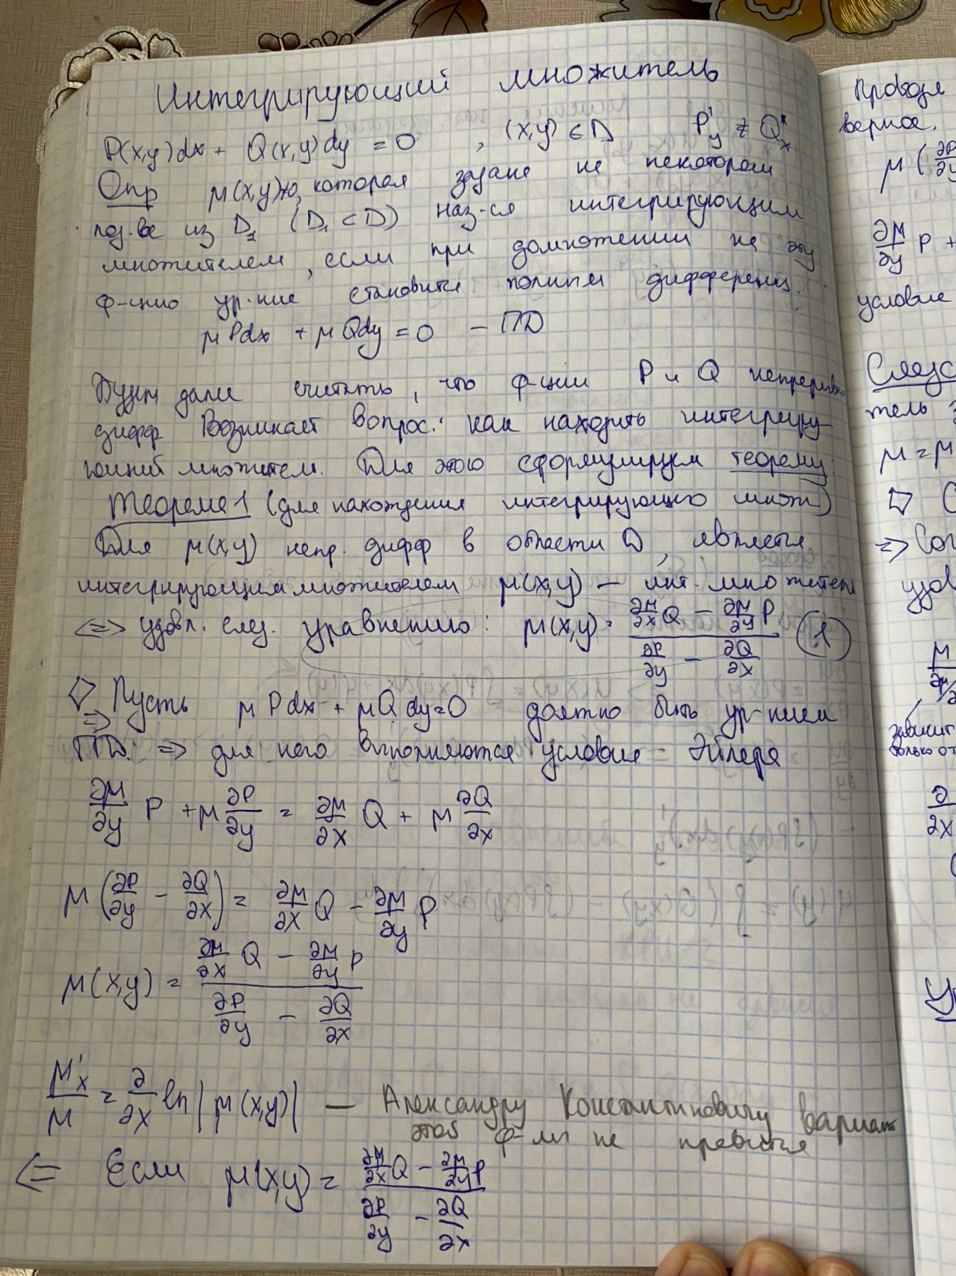 Интегрирующий множитель
P(x,y)dx + Q(x,y)dy = 0 , (x,y) ∈ D P'y ≠ Q'x
Опр μ(x,y)≠0, которая задана на некотором
под-ве из D₁ (D₁ ⊂ D) наз-ся интегрирующим
множителем, если при домножении на эту
ф-цию ур-ние становится полным дифференц.
μPdx + μQdy = 0 – ПД
Будем далее считать, что ф-ции P и Q непрерывно
дифф Возникает вопрос: как находить интегриру-
ющий множител. Для этого сформулируем теорему
Теорема 1 (для нахождения интегрирующего множ)
Для μ(x,y) непр. дифф в области D, является
интегрирующим множителем μ(x,y) – инт. множитель
<=> удовл. след. уравнению: μ(x,y) = (∂μ/∂x Q – ∂μ/∂y P)/(∂P/∂y – ∂Q/∂x) (1)
Пусть μPdx + μQdy = 0 должно быть ур-нием
=>
ППД. => для него выполняются условие = Эйлера
∂μ/∂y P + μ ∂P/∂y = ∂μ/∂x Q + μ ∂Q/∂x
μ(∂P/∂y – ∂Q/∂x) = ∂μ/∂x Q – ∂μ/∂y P
μ(x,y) = (∂μ/∂x Q – ∂μ/∂y P)/(∂P/∂y – ∂Q/∂x)
μ'x/μ = ∂/∂x ln|μ(x,y)| — Александру Константиновичу вариант
этой ф-лы не
<= Если μ(x,y) = (∂μ/∂x Q – ∂μ/∂y P)/(∂P/∂y – ∂Q/∂x)
верное.
μ(∂P/∂y
∂μ/∂y P +
условие
Следс
тель
μ = μ
=> Сог
удов
зависит
только от
∂/∂x